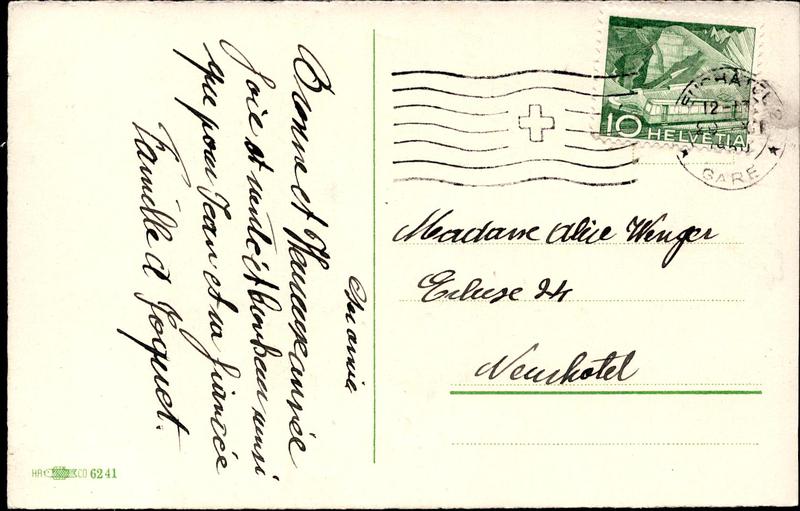 Ma amie
Bonne et Heureuse année
Joie et santé et bonheur ainsi
que pour Jean et sa fiancée
Famille A Joquet.
HELVETIA
10
NEUCHATEL 2
12-13
GARE
Madame Alice Wenger
Ecluse 24
Neuchâtel
6241